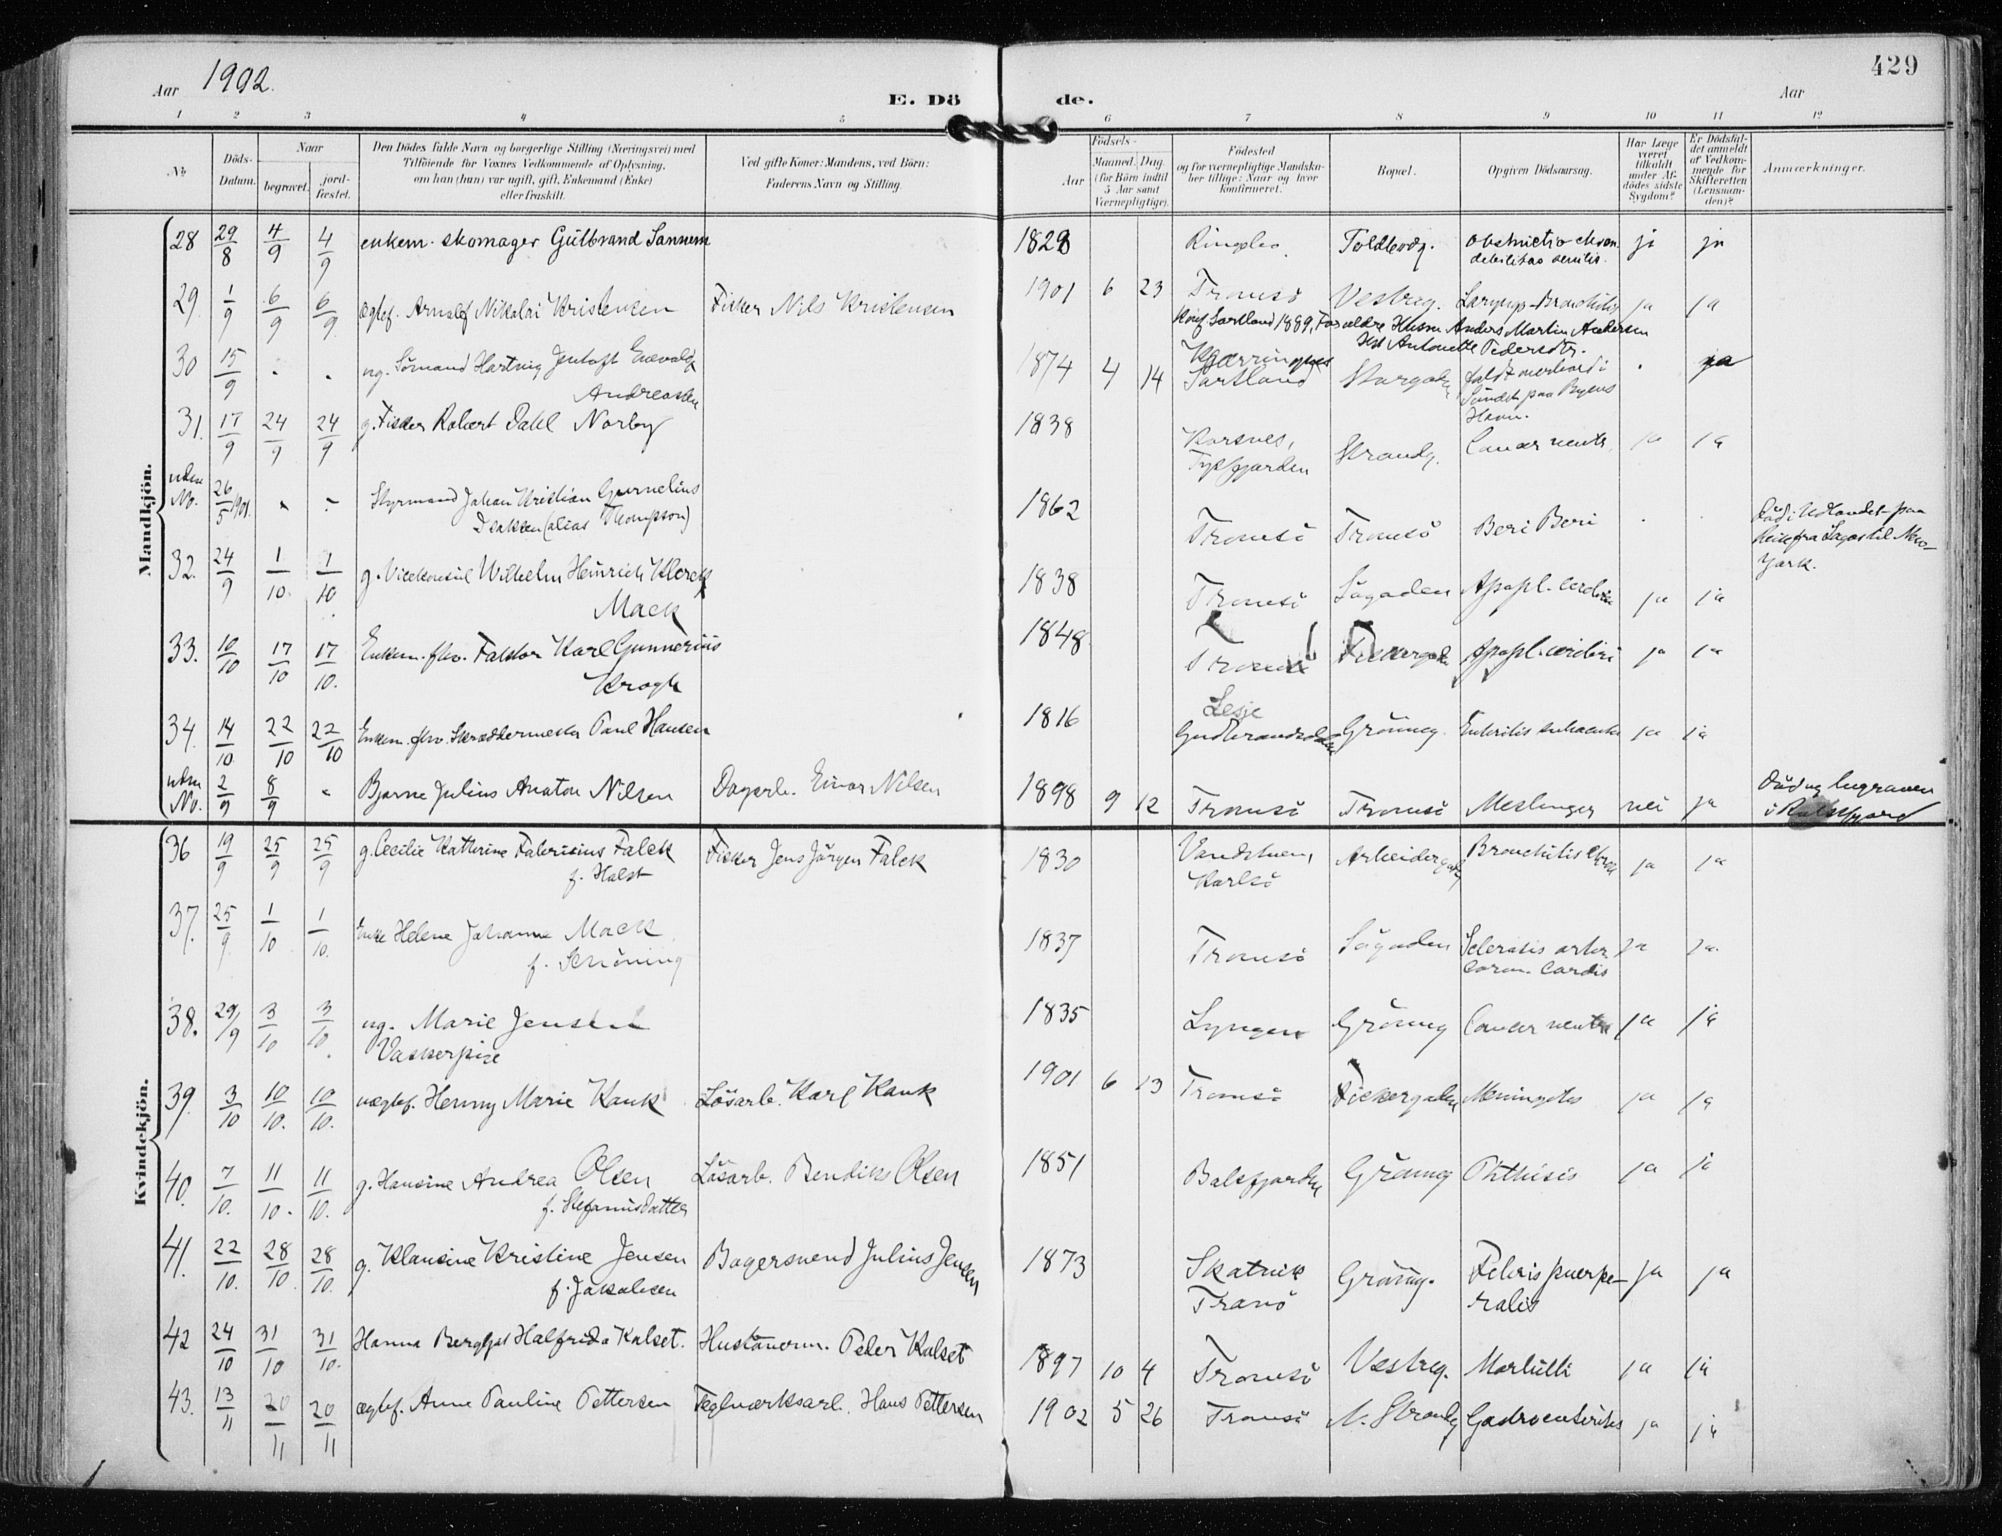 429
Aar 1902.
E. Döde.
Aar
1 2 3 4 5 6 7 8 9 10 11 12
No
Döds-Datum.
Naar
begravet.
jord-fæstet.
Den Dödes fulde Navn og borgerlige Stilling (Næringsvei) med
Tilföiende for Voxnes Vedkommende af Oplysning,
om han (hun) var ugift, gift, Enkemand (Enke)
eller fraskilt.
Ved gifte Koner: Mandens, ved Börn:
Faderens Navn og Stilling.
Födsels-
Aar
Maaned. Dag.
(for Börn indtil 5 Aar samt Værnepligtige).
Födested
og for værnepligtige Mandska-
ber tillige: Naar og hvor
konfirmeret.
Bopæl.
Opgiven Dödsaarsag.
Har Læge
været
tilkaldt
under Af-
dödes sidste
Sygdom?
Er Dödsfal-
det anmeldt
af Vedkom-
mende for
Skifteretten
(Lensman-
den)?
Anmærkninger.
Mandkjön.
28 29/8 4/9 4/9 enkem. skomager Gulbrand Sannem 1828 Toldbodg. obstructio chron. debilitas senilis. ja ja
29. 1/9 6/9 6/9 ægtef. Arnolf Nikolai Kristensen Fisker Nils Kristensen 1901 6 23 Tromsö Vestreg. Laryngo-Bronchitis ja ja
Konf. Sortland 1889, Forældre Husm. Anders Martin Andersen
Antonette Pedersdtr.
30 15/9 . . ug. Hartvig Jentoft Enevald Andreassen 1874 4 14 Sortland Storgaten faldt overbord i Sundet paa Byens Havn. . ja
31. 17/9 24/9 24/9 g. Fisker Robert Dahl Norby 1838 Korsnes, Tysfjorden Strandg. Cancer ventr. ja ja
uden No. 26/5 1901. Styrmand Johan Kristian Gurnelius Isaksen (alias Thompson) 1862 Tromsö Tromsö Beri Beri . . Död i Udlandet paa Reise fra Lagos til New-York.
32. 24/9 1/10. 1/10 g. Vicekonsul Wilhelm Heinrich Klerck Mack 1838 Tromsö Sögaden Apopl. cerebri ja ja
33. 10/10 17/10 17/10. Enkem. fhv. Faktor Karl Gunnerius Krogh 1848 Tromsö Fiskergaden Apopl. cerebri ja ja
34. 14/10 22/10 22/10 Enkem. fhv. Skræddermester Paul Hansen 1816 Lesje Gudbrandsdalen Grönneg. Enteritis subacuta ja ja
uden No. 2/9 8/9 Bjarne Julius Anaton Nilsen Dagarb. Einar Nilsen 1898 9 12 Tromsö Tromsö Meslinger nei ja Död og begraven i Balsfjord
Kvindekjön.
36 19/9 25/9 25/9 g. Cecilie Katherine Falck f. Halst Fisker Jens Jörgen Falck 1830 Karlsö Arbeidergaden Bronchitis chron ja ja
37. 25/9. 1/10 1/10. Enke Helene Johanne Mack f. Schöning 1837 Tromsö Sögaden Sclerosis arter. coron. cordis ja ja
38. 29/9 3/10 3/10. ug. Marie Jensen Vaskerpige 1835 Lyngen Grönneg Cancer ventr ja ja
39. 3/10 10/10. 10/10. uægtef. Henny Marie Kauk Lösarb. Karl Kauk 1901 6 13 Tromsö Fiskergaden Meningitis ja ja
40. 7/10. 11/10. 11/10. g. Hansine Andrea Olsen f. Stefanusdatter Lösarb. Bendiks Olsen 1851 Balsfjorden Grönneg Phthisis ja ja
41. 22/10. 28/10. 28/10. g. Klausine Kristine Jensen f. Jakobsen Bagersvend Julius Jensen 1873 Tranö Grönneg. Febris puerpe-ralis ja ja
42 24/10 31/10 31/10. Hanna Bergljot Halfrida Kalset. Hustömerm. Peder Kalset 1897 10 4 Tromsö Vestreg. Morbilli ja ja
43. 13/11 20/11 20/11 ægtef. Anne Pauline Pettersen Teglværksarb. Hans Pettersen 1902 5 26 Tromsö N. Strandg Gastroenteritis ja ja